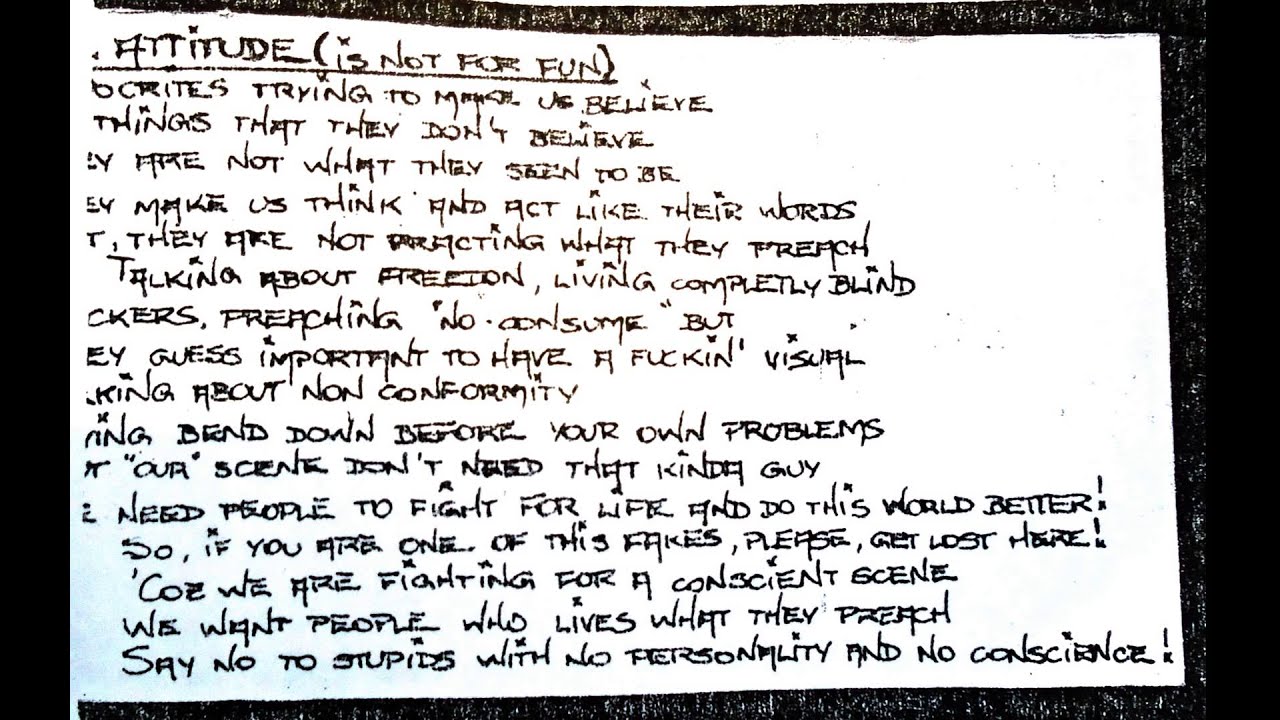 . ATTITUDE (IS NOT FOR FUN)
OCRITES TRYING TO MAKE US BELIEVE
THINGS THAT THEY DON'T BELIEVE
EY ARE NOT WHAT THEY SEEN TO BE
EY MAKE US THINK AND ACT LIKE THEIR WORDS
T, THEY ARE NOT PRACTING WHAT THEY PREACH
TALKING ABOUT FREEDON, LIVING COMPLETLY BLIND
CKERS, PREACHING "NO-CONSUME" BUT
EY GUESS IMPORTANT TO HAVE A FUCKIN' VISUAL
KING ABOUT NON CONFORMITY
ING BEND DOWN BEFORE YOUR OWN PROBLEMS
T "OUR" SCENE DON'T NEED THAT KINDA GUY
E NEED PEOPLE TO FIGHT FOR LIFE AND DO THIS WORLD BETTER!
SO, IF YOU ARE ONE OF THIS FAKES, PLEASE, GET LOST HERE!
'COZ WE ARE FIGHTING FOR A CONSCIENT SCENE
WE WANT PEOPLE WHO LIVES WHAT THEY PREACH
SAY NO TO STUPIDS WITH NO PERSONALITY AND NO CONSCIENCE!